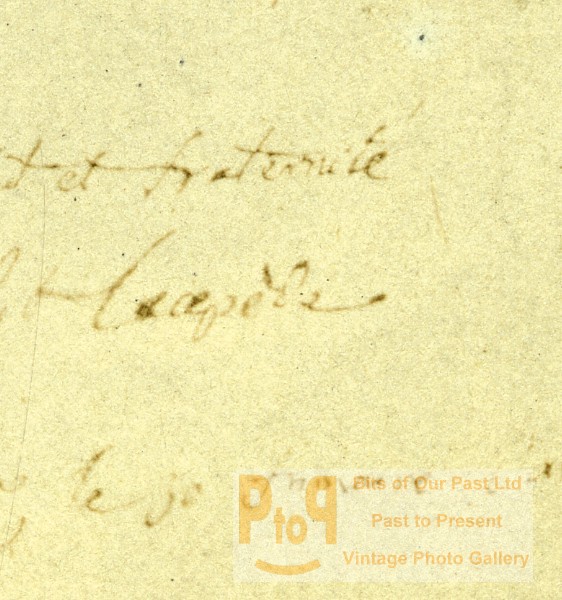 t et fraternité
Lacepède
le 30
Bits of Our Past Ltd
PtoP
Past to Present
Vintage Photo Gallery